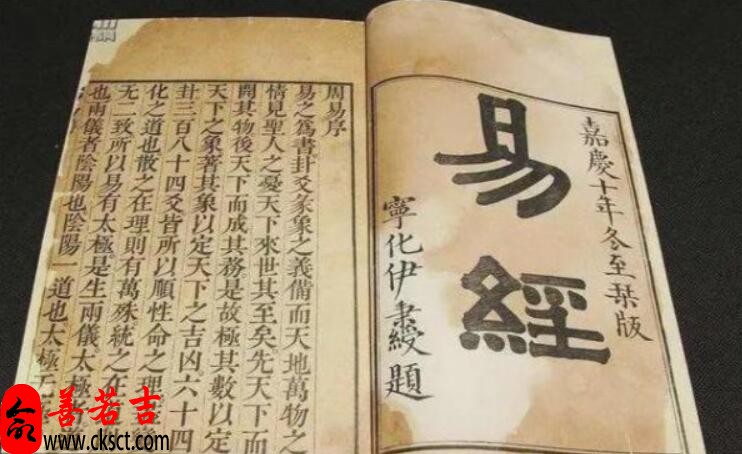 嘉慶十年冬至琹版
易經
寧化伊秉綬題
周易序
易之爲書卦爻彖象之義備而天地萬物之
情見聖人之憂天下來世其至矣先天下而
開其物後天下而成其務是故極其數以定
天下之象著其象以定天下之吉凶六十四
卦三百八十四爻皆所以順性命之理
化之道也散之在理則有萬殊統之在
无二致所以易有太極是生兩儀太極者道
也兩儀者陰陽也陰陽一道也太極无
善若吉
www.cksct.com